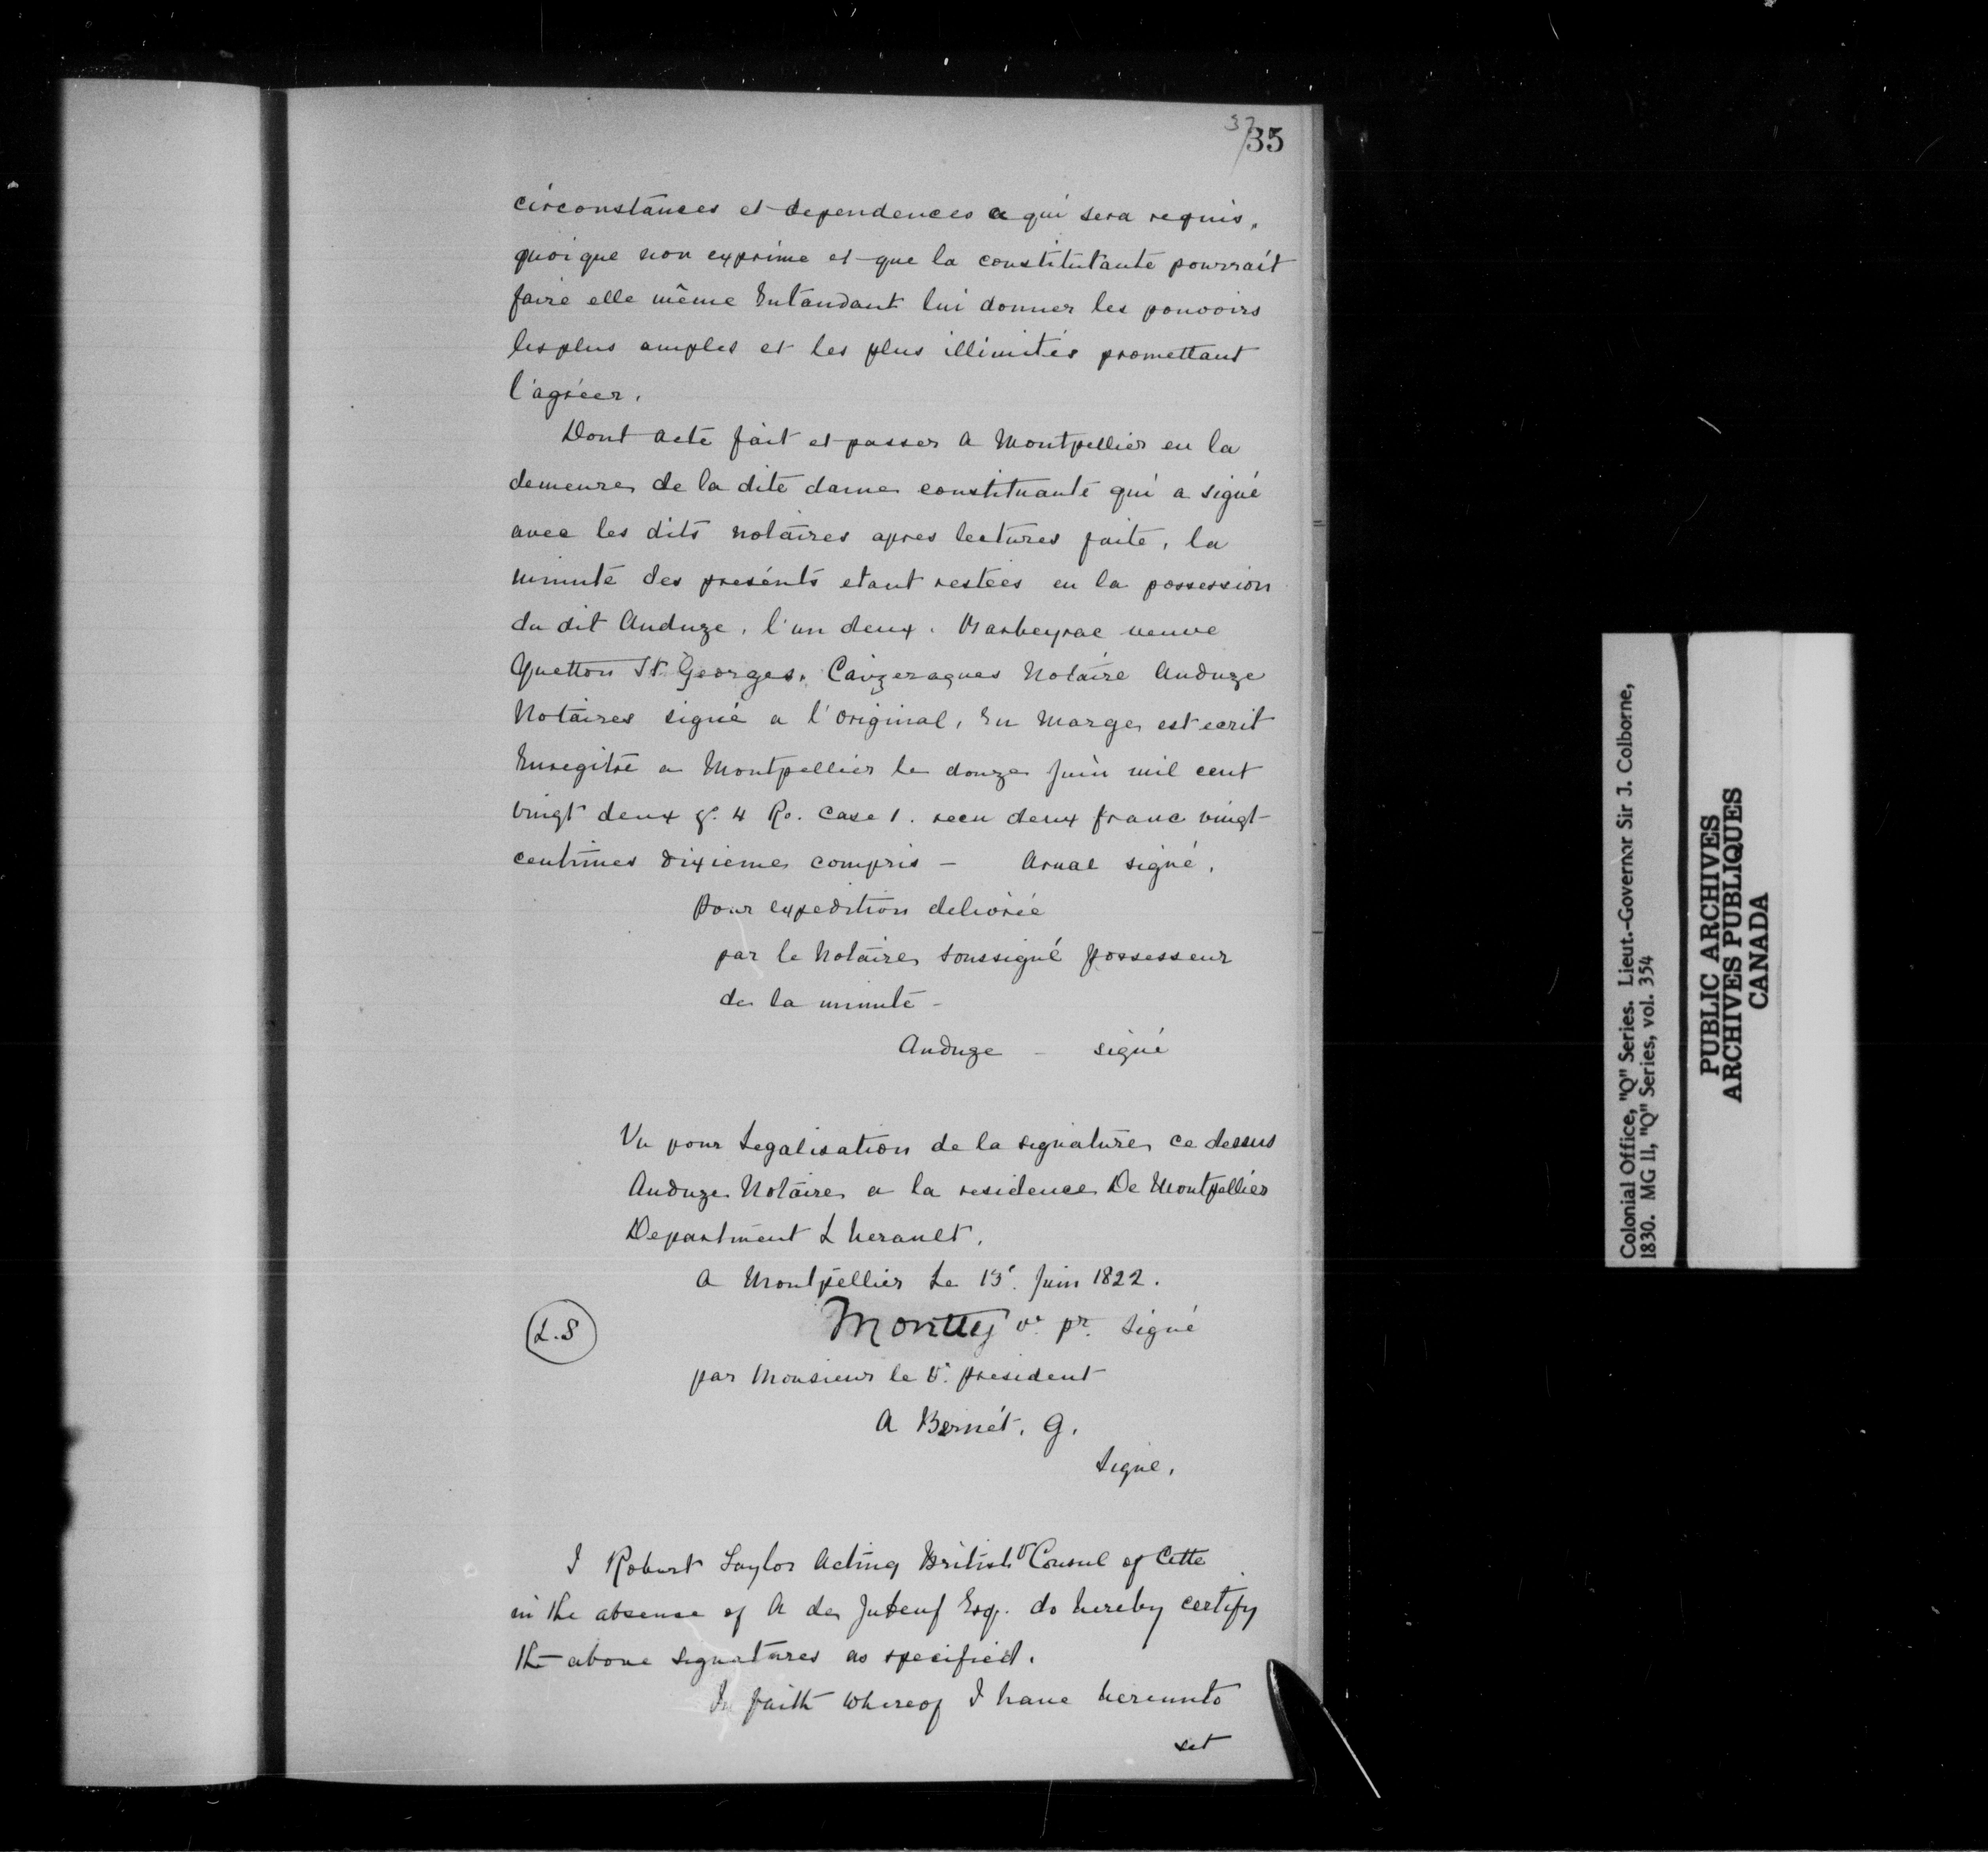 37/35
circonstances et dependences a qui sera requis,
quoique non exprime et que la constitutante pourrait
faire elle même Entandant lui donner les pouvoirs
les plus amples et les plus illimités promettant
l'agréer.
Dont acte fait et passer a Montpellier en la
demeure de la dite dame constituante qui a signé
avec les dits notaires apres lectures faite, la
minute des presénts etant restées en la possession
du dit Anduze, l'un deux. Barbeyrac veuve
Quetton St. Georges. Caizergues Notaire Anduze
Notaires signé a l'original, En Marge est ecrit
Enregitré a Montpellier le douze Juin mil cent
vingt deux f. 4 Ro. Case 1. recu deux franc vingt
centimes dixieme compris - Arnal signé.
Pour expedition delivrée
par le Notaire soussigné possesseur
de la minute -
Anduze - signé
Vu pour Legalisation de la signature ce dessus
Anduze Notaire a la residence De Montpellier
Department L herault.
A Montpellier Le 13. Juin 1822.
L.S
v. pr. signé
par Monsieur le V. president
A Bernét. G.
signe.
I Robert Taylor Acting British V Consul of Cette
in the absense of A de Jubeuf Esq. do hereby certify
the above signatures as specified.
In faith whereof I have hereunto
set
Colonial Office, "Q" Series. Lieut.-Governor Sir J. Colborne,
1830. MG 11, "Q" Series, vol. 354
PUBLIC ARCHIVES
ARCHIVES PUBLIQUES
CANADA